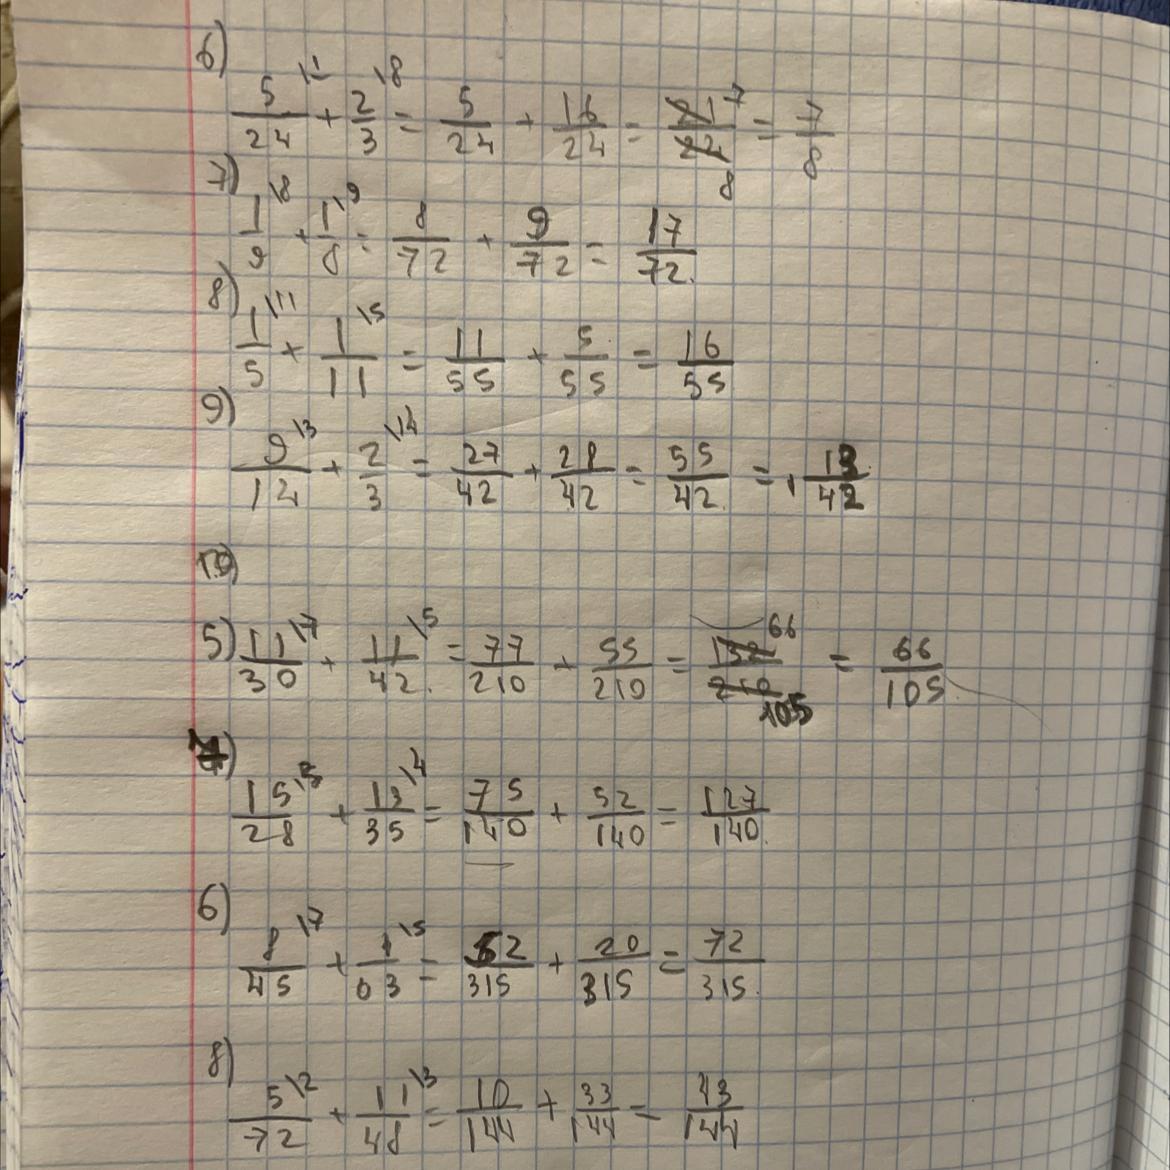 6)
5/24 \1 + 2/3 \8 = 5/24 + 16/24 = 21/24 7 8 = 7/8
7)
1/9 \8 + 1/8 \9 = 8/72 + 9/72 = 17/72.
8)
1/5 \11 + 1/11 \5 = 11/55 + 5/55 = 16/55
9)
9/14 \3 + 2/3 \14 = 27/42 + 28/42 = 55/42. = 1 13/42
10)
5) 11/30 \7 + 11/42. \5 = 77/210 + 55/210 = 132/210 66 105 = 66/105
15/28 \5 + 13/35 \4 = 75/140 + 52/140 = 127/140.
6)
8/45 \7 + /63 \5 = 52/315 + 20/315 = 72/315.
8)
5/72 \2 + 11/48 \3 = 10/144 + 33/144 = 43/144